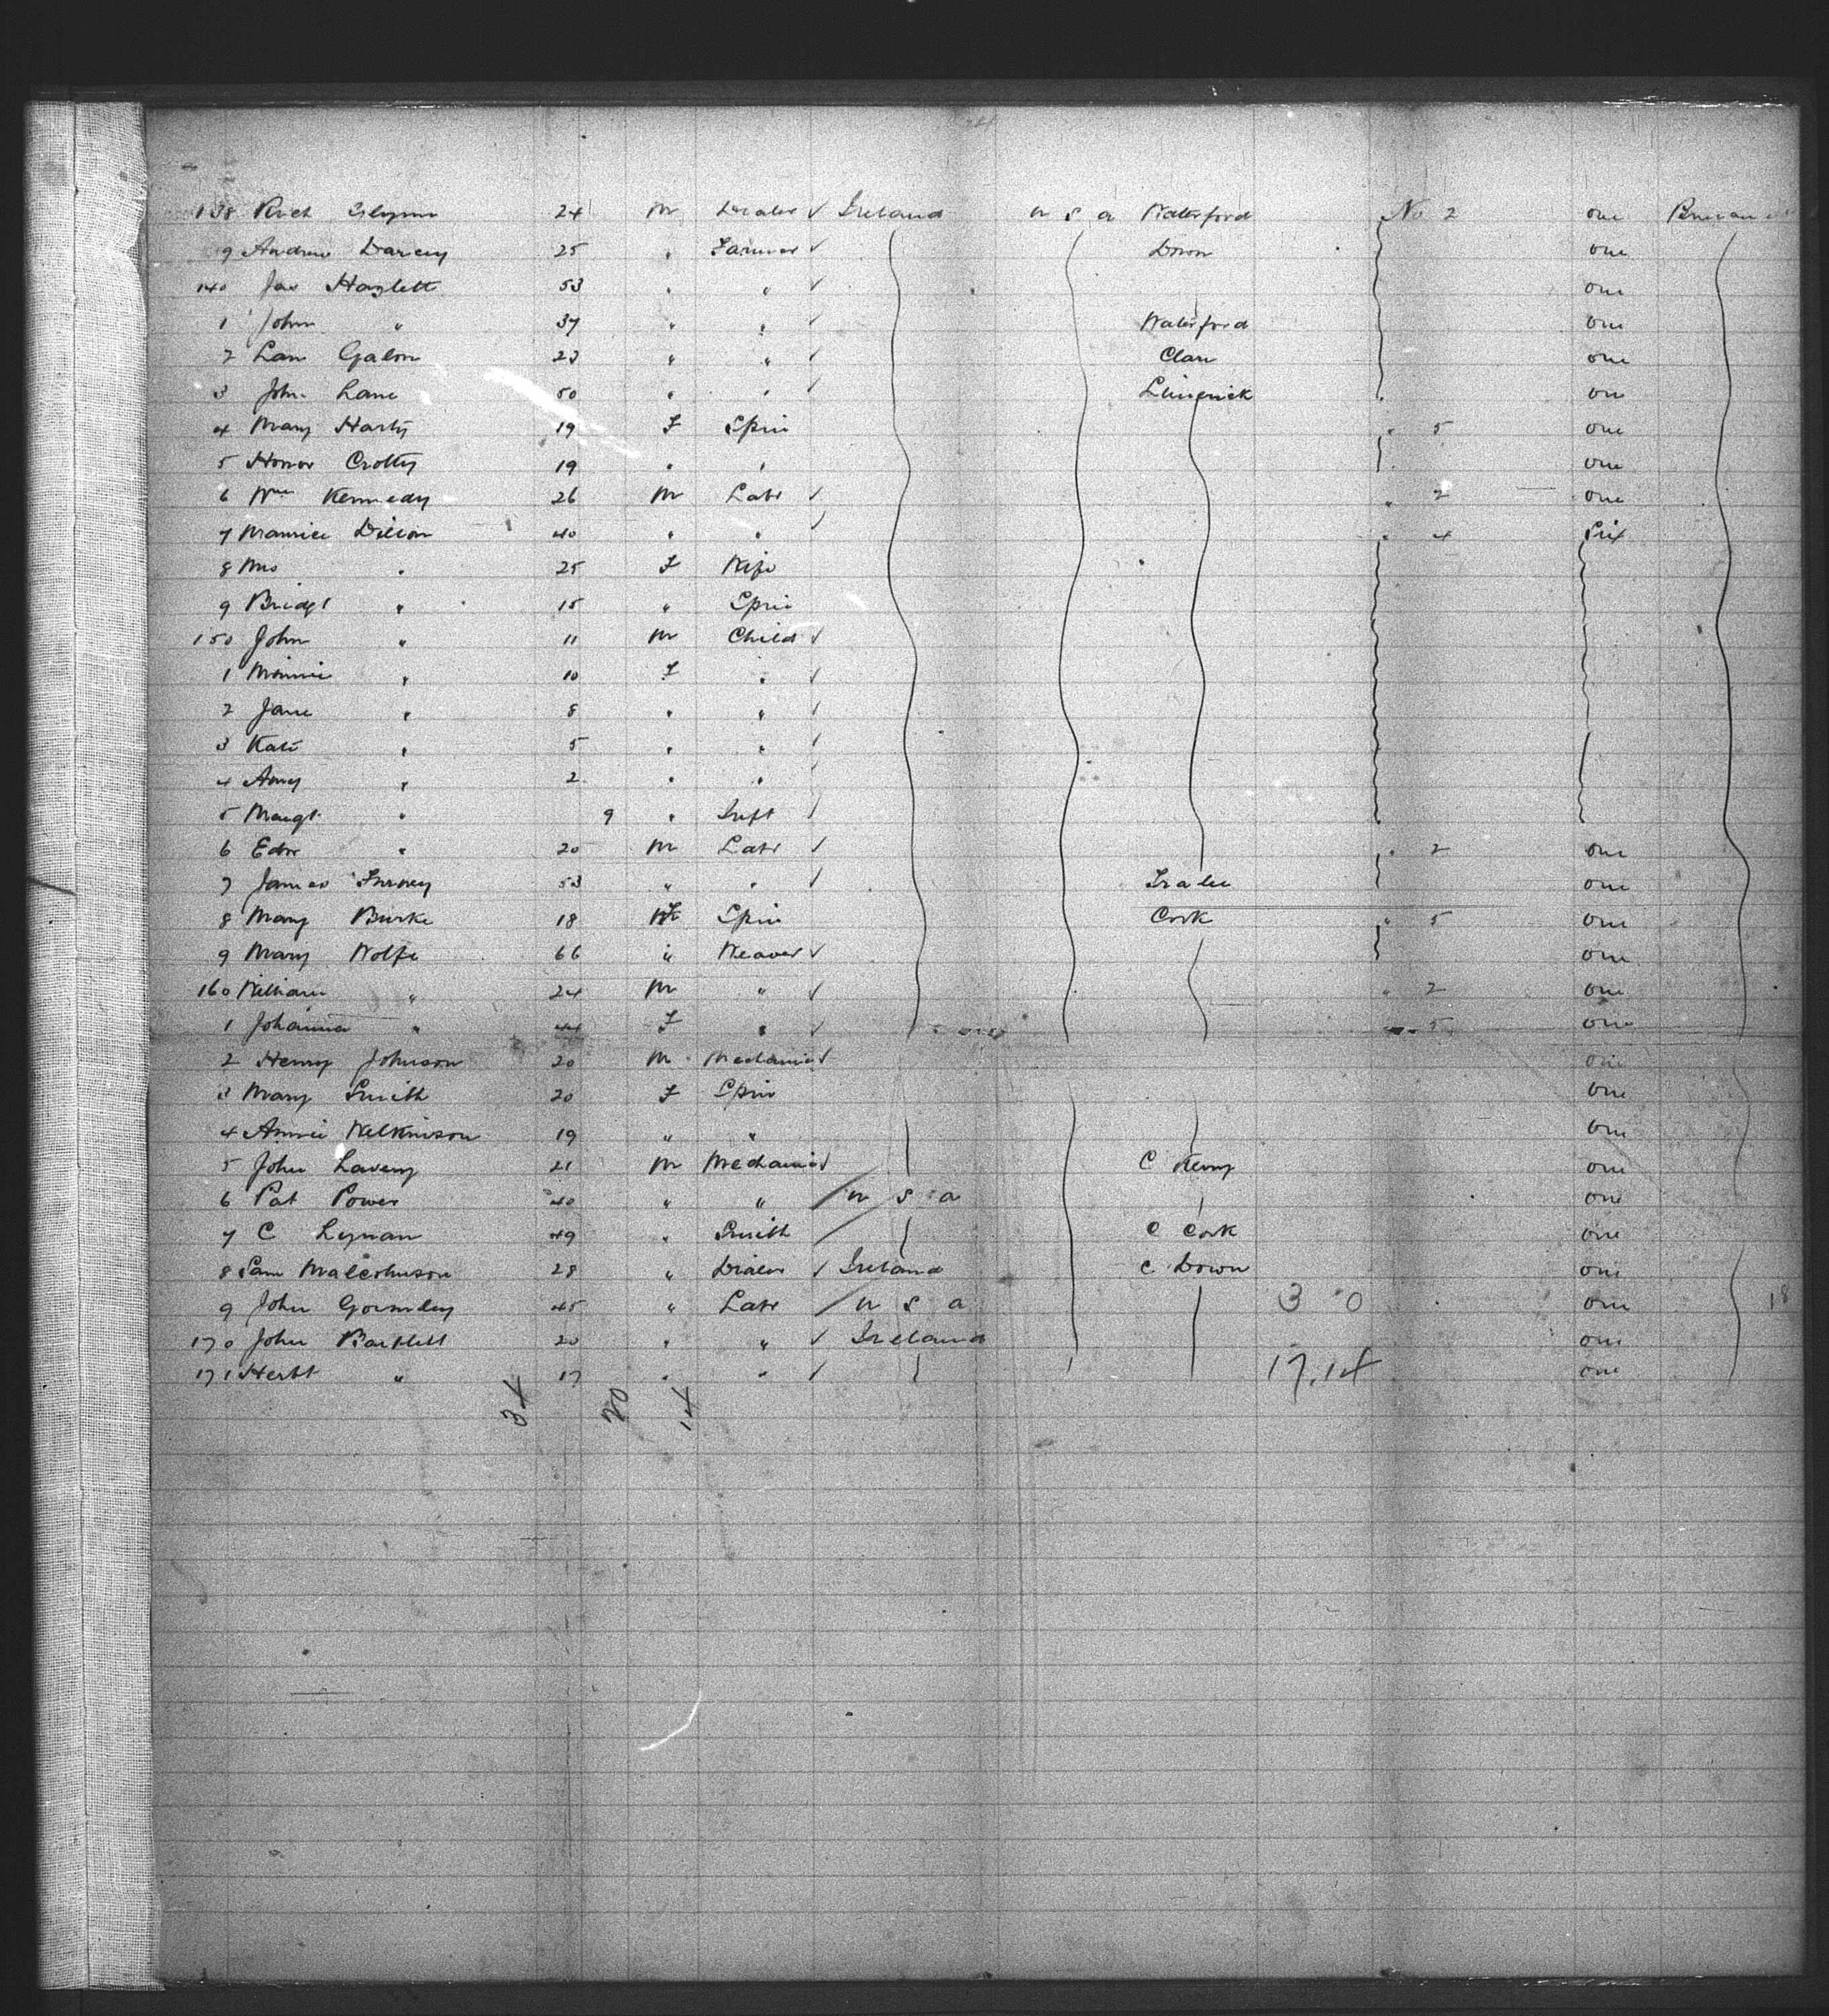 138 Rich Glynn 24 M Dealer ✓ Ireland U S A Waterford No 2 one
9 Andrew Darcey 25 " Farmer ✓ Down one
140 Jas Hazlett 53 " " ✓ one
1 John " 37 " " ✓ Waterford one
2 Lan Galon 23 " " ✓ Clare one
3 John Lane 50 " " ✓ Limerick one
4 Mary Harty 19 F Spin " 5 one
5 Honor Crotty 19 " " one
6 Wm Kennedy 26 M Labr ✓ " 2 one
7 Maurice Dillon 40 " " ✓ " 4 Six
8 Mrs " 25 F Wife
9 Bridgt " 15 " Spin
150 John " 11 M Child ✓
1 Minnie " 10 F " ✓
2 Jane " 8 " " ✓
3 Kate " 5 " " ✓
4 Amy " 2 " " ✓
5 Margt " 9 " Inft ✓
6 Edw " 20 M Labr ✓ " 2 one
7 James Furney 53 " " ✓ Tralee one
8 Mary Burke 18 F Spin Cork " 5 one
9 Mary Wolfe 66 " Weaver ✓ one
160 William " 24 M " ✓ " 2 one
1 Johanna " 44 F " ✓ " 5 one
2 Henry Johnson 20 M Mechanic ✓ one
3 Mary Smith 20 F Spin one
4 Annie Wilkinson 19 " " one
5 John Lavery 21 M Mechanic ✓ C Kerry one
6 Pat Power 40 " " / U S A one
7 C Lynan 49 " Smith / C Cork one
8 Sam Malcolmson 28 " Dealer ✓ Ireland C Down one
9 John Gormley 45 " Labr / U S A 3 0 one 18
170 John Bartlett 20 " " ✓ Ireland one
171 Herbt " 17 " " ✓ 17.14 one
34 20 14